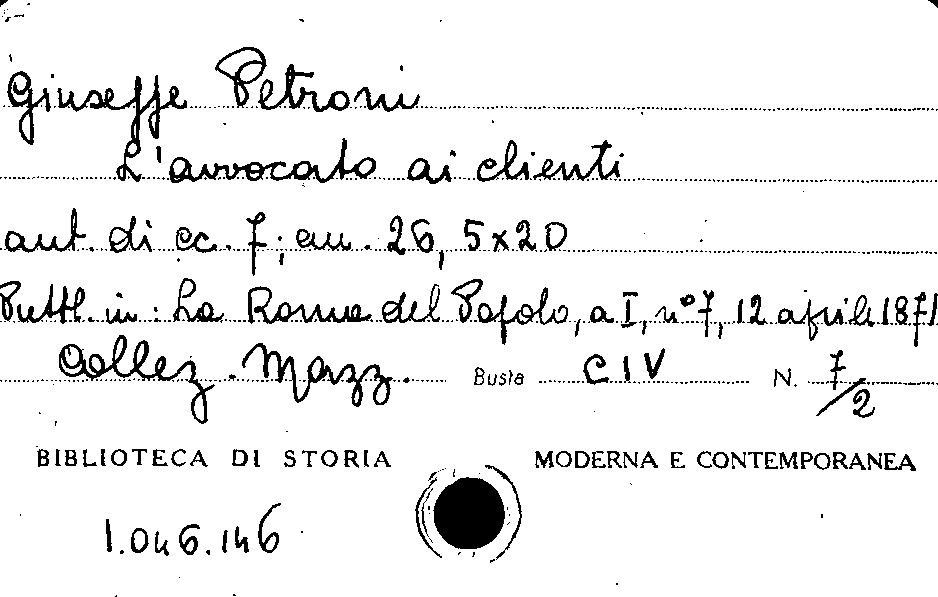 Giuseppe Petroni
L'avvocato ai clienti
aut. di cc. 7; cm. 26,5x20
Pubbl. in: La Roma del Popolo, a I, n° 7, 12 aprile 1871
Collez. Mazz. Busta CIV N. 7/2
BIBLIOTECA DI STORIA MODERNA E CONTEMPORANEA
1.046.146